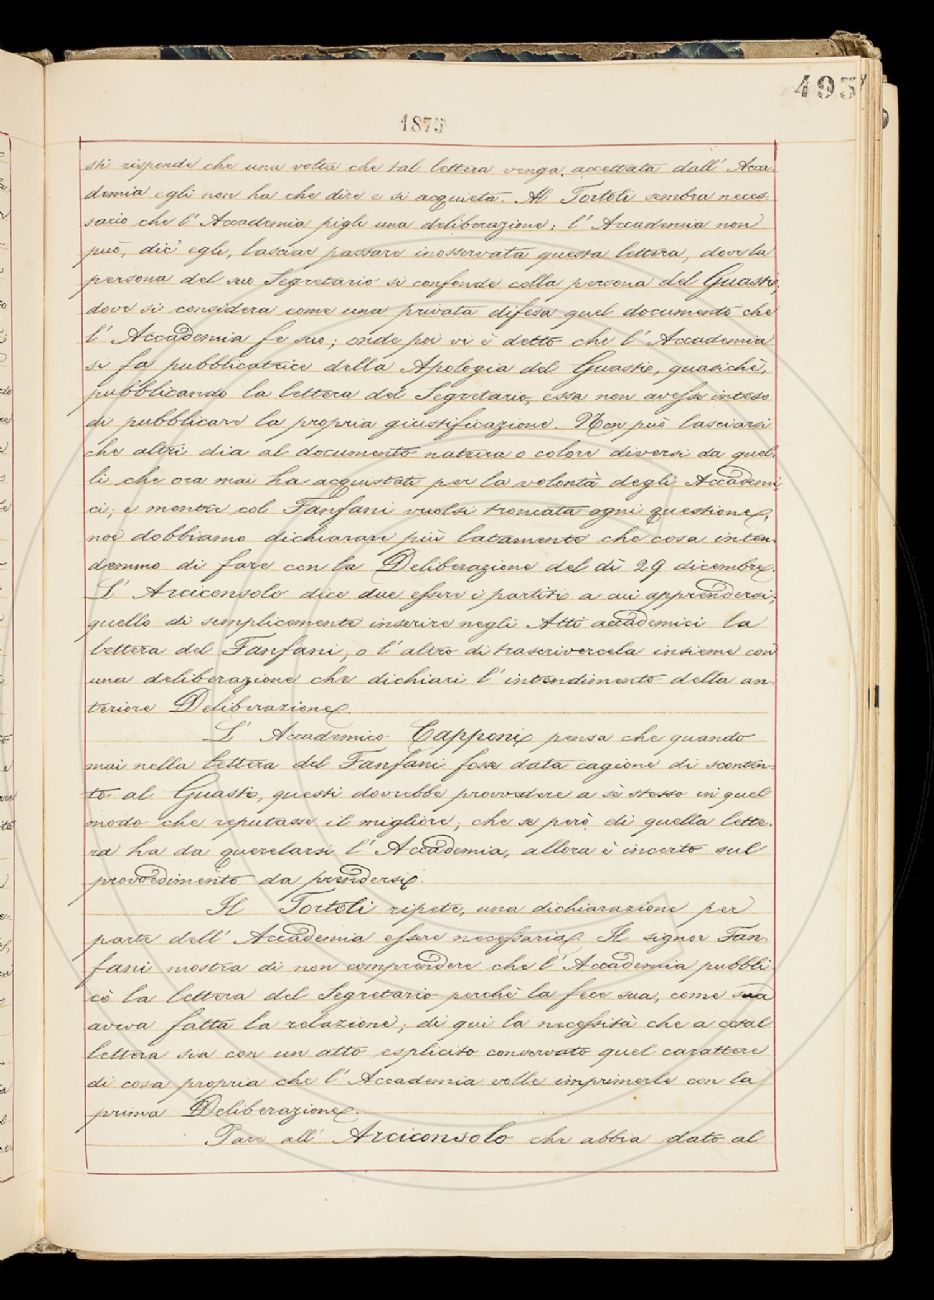 495
1873
sti risponde che una volta che tal lettera venga accettata dall' Acca-
demia egli non ha che dire e si acquieta. Al Tortoli sembra neces-
sario che l' Accademia pigli una deliberazione; l' Accademia non
può, dic' egli, lasciar passare inosservata questa lettera, dove la
persona del suo Segretario si confonde colla persona del Guasti,
dove si considera come una privata difesa quel documento che
l' Accademia fe suo; onde poi vi è detto che l' Accademia
si fa pubblicatrice della Apologia del Guasti, quasichè,
pubblicando la lettera del Segretario, essa non avesse inteso
di pubblicare la propria giustificazione. Non può lasciarsi
che altri dia al documento natura o colore diversi da quel-
li che ora mai ha acquistati per la volontà degli Accademi-
ci; e mentre col Fanfani vuolsi troncata ogni questione,
noi dobbiamo dichiarare più latamente che cosa inten-
demmo di fare con la Deliberazione del dì 29 dicembre.
L' Arciconsolo dice due essere i partiti a cui apprendersi;
quello di semplicemente inserire negli Atti accademici la
lettera del Fanfani, o l' altro di trascrivercela insieme con
una deliberazione che dichiari l' intendimento della an-
teriore Deliberazione.
L' Accademico Capponi pensa che quando
mai nella lettera del Fanfani fosse data cagione di sconten-
to al Guasti, questi dovrebbe provvedere a sè stesso in quel
modo che reputasse il migliore, che se però di quella lette-
ra ha da querelarsi l' Accademia, allora è incerto sul
provvedimento da prendersi.
Il Tortoli ripete, una dichiarazione per
parte dell' Accademia essere necessaria. Il signor Fan-
fani mostra di non comprendere che l' Accademia pubbli-
cò la lettera del Segretario perchè la fece sua, come sua
aveva fatta la relazione; di qui la necessità che a cotal
lettera sia con un atto esplicito conservato quel carattere
di cosa propria che l' Accademia volle imprimerle con la
prima Deliberazione.
Pare all' Arciconsolo che abbia dato al